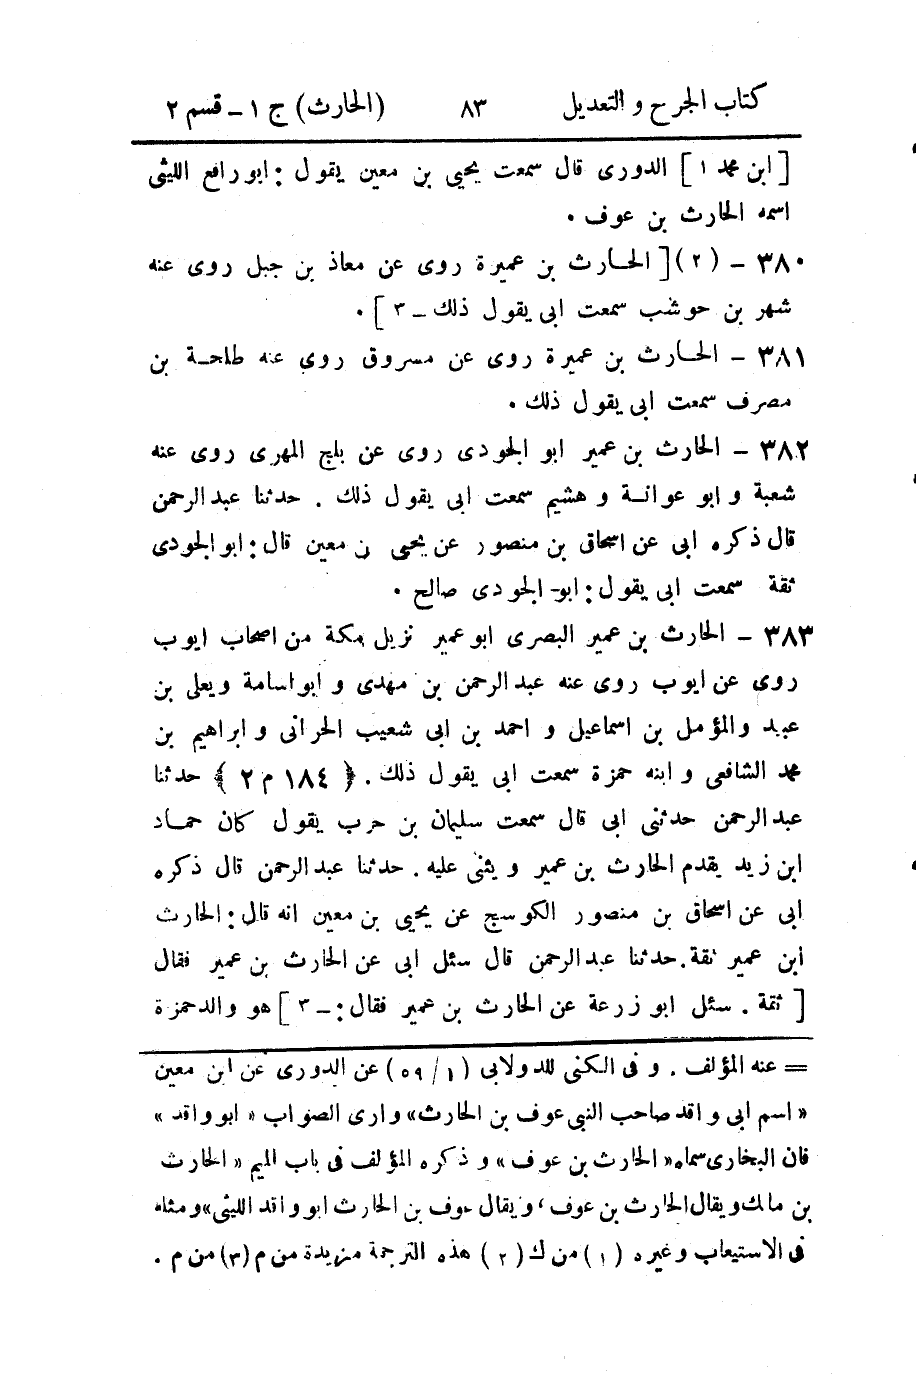 كتاب الجرح و التعديل ٨٣ (الحارث) ج ١ ـ قسم ٢
[ابن محمد ١] الدورى قال سمعت يحيى بن معين يقول : ابو رافع الليثى
اسمه الحارث بن عوف .
٣٨٠ ـ (٢) [الحارث بن عميرة روى عن معاذ بن جبل روى عنه
شهر بن حوشب سمعت ابى يقول ذلك ـ ٣] .
٣٨١ ـ الحارث بن عميرة روى عن مسروق روى عنه طلحة بن
مصرف سمعت ابى يقول ذلك .
٣٨٢ ـ الحارث بن عمير ابو الجودى روى عن بلج المهرى روى عنه
شعبة و ابو عوانة و هشيم سمعت ابى يقول ذلك . حدثنا عبد الرحمن
قال ذكره ابى عن اسحاق بن منصور عن يحيى بن معين قال : ابو الجودى
ثقة سمعت ابى يقول : ابو الجودى صالح .
٣٨٣ ـ الحارث بن عمير البصرى ابو عمير نزيل مكة من اصحاب ايوب
روى عن ايوب روى عنه عبد الرحمن بن مهدى و ابو اسامة ويعلى بن
عبيد والمؤمل بن اسماعيل و احمد بن ابى شعيب الحرانى و ابراهيم بن
محمد الشافعى و ابنه حمزة سمعت ابى يقول ذلك . ﴿ ١٨٤ م ٢ ﴾ حدثنا
عبد الرحمن حدثنى ابى قال سمعت سليمان بن حرب يقول كان حماد
ابن زيد يقدم الحارث بن عمير و يثنى عليه . حدثنا عبد الرحمن قال ذكره
ابى عن اسحاق بن منصور الكوسج عن يحيى بن معين انه قال : الحارث
ابن عمير ثقة . حدثنا عبد الرحمن قال سئل ابى عن الحارث بن عمير فقال
[ثقة . سئل ابو زرعة عن الحارث بن عمير فقال : ـ ٣] هو والد حمزة
= عنه المؤلف . و فى الكنى للدولابى (١ / ٥٩) عن الدورى عن ابن معين
« اسم ابى واقد صاحب النبى عوف بن الحارث» وارى الصواب « ابو واقد »
فان البخارى سماه « الحارث بن عوف » و ذكره المؤلف فى باب الميم « الحارث
بن مالك ويقال الحارث بن عوف ، ويقال عوف بن الحارث ابو واقد الليثى» ومثله
فى الاستيعاب وغيره (١) من ك (٢) هذه الترجمة مزيدة من م (٣) من م .